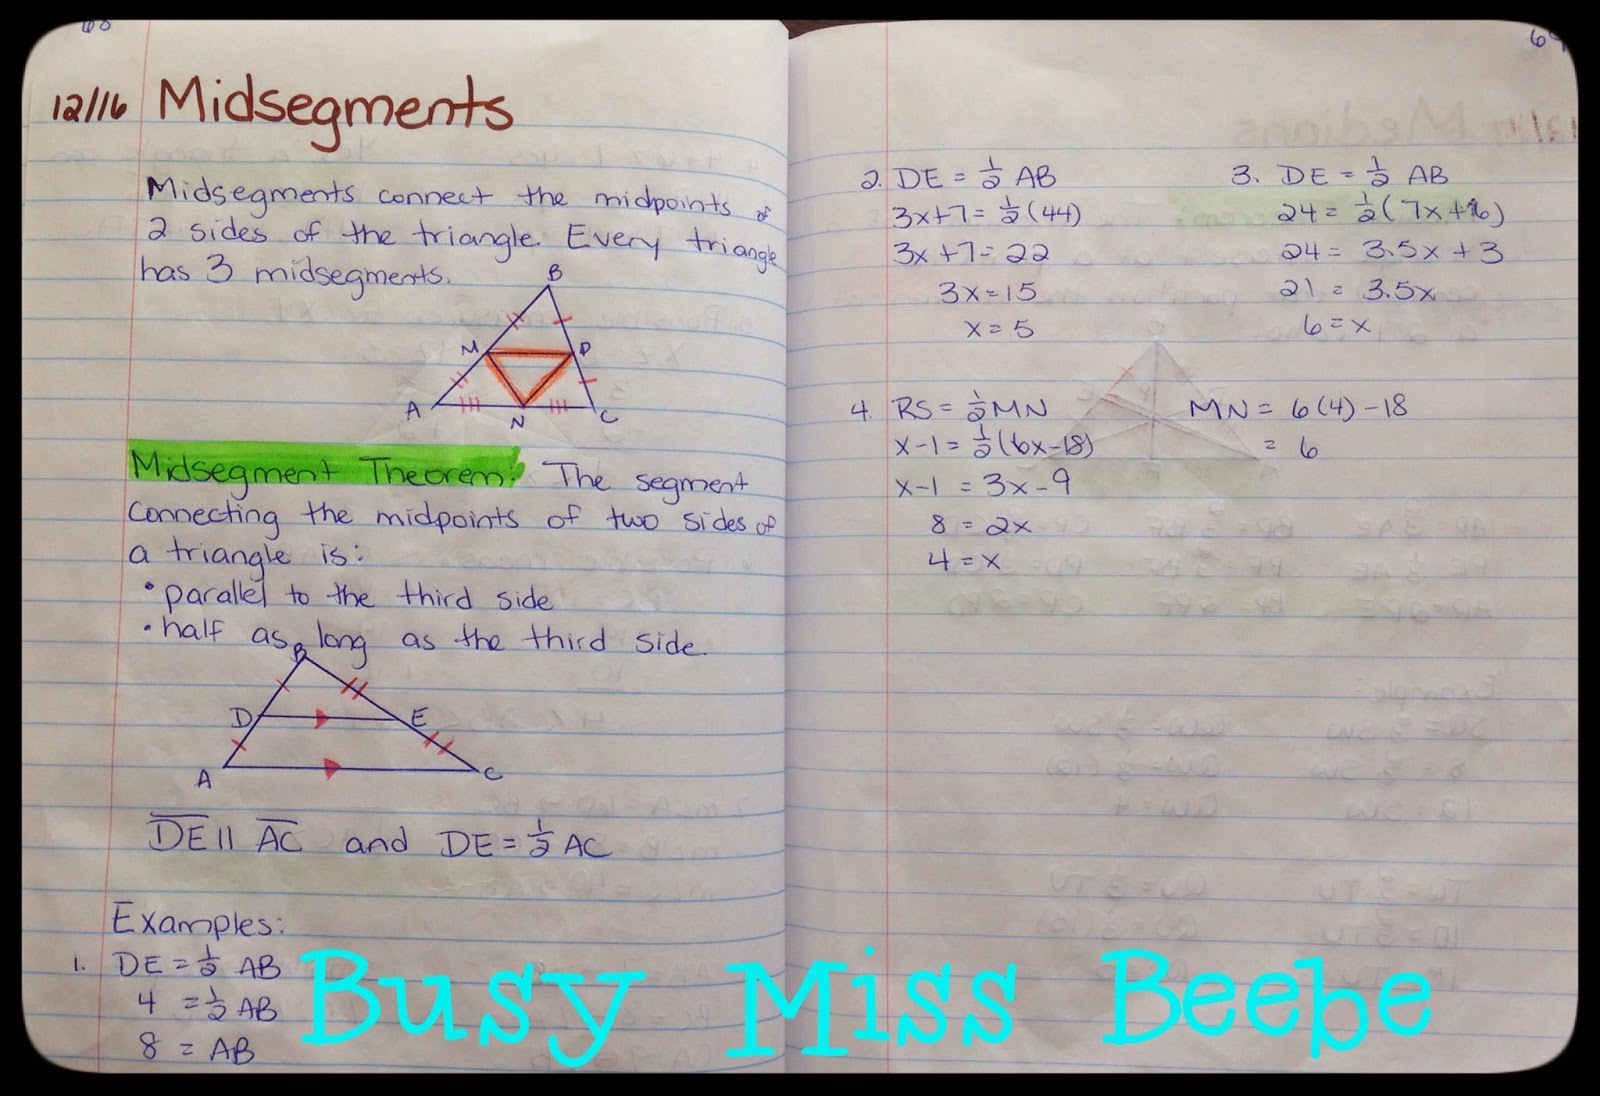 12/16 Midsegments
Midsegments connect the midpoints of
2 sides of the triangle. Every triangle
has 3 midsegments.
B
M
P
A
N
C
Midsegment Theorem: The segment
connecting the midpoints of two sides of
a triangle is:
• parallel to the third side
• half as long as the third side.
B
D
E
A
C
DE || AC and DE = 1/2 AC
Examples:
1. DE = 1/2 AB
4 = 1/2 AB
8 = AB
2. DE = 1/2 AB
3x+7 = 1/2 (44)
3x+7 = 22
3x = 15
x = 5
3. DE = 1/2 AB
24 = 1/2 (7x+6)
24 = 3.5x + 3
21 = 3.5x
6 = x
4. RS = 1/2 MN
x-1 = 1/2 (6x-18)
x-1 = 3x-9
8 = 2x
4 = x
MN = 6(4) - 18
= 6
Busy Miss Beebe